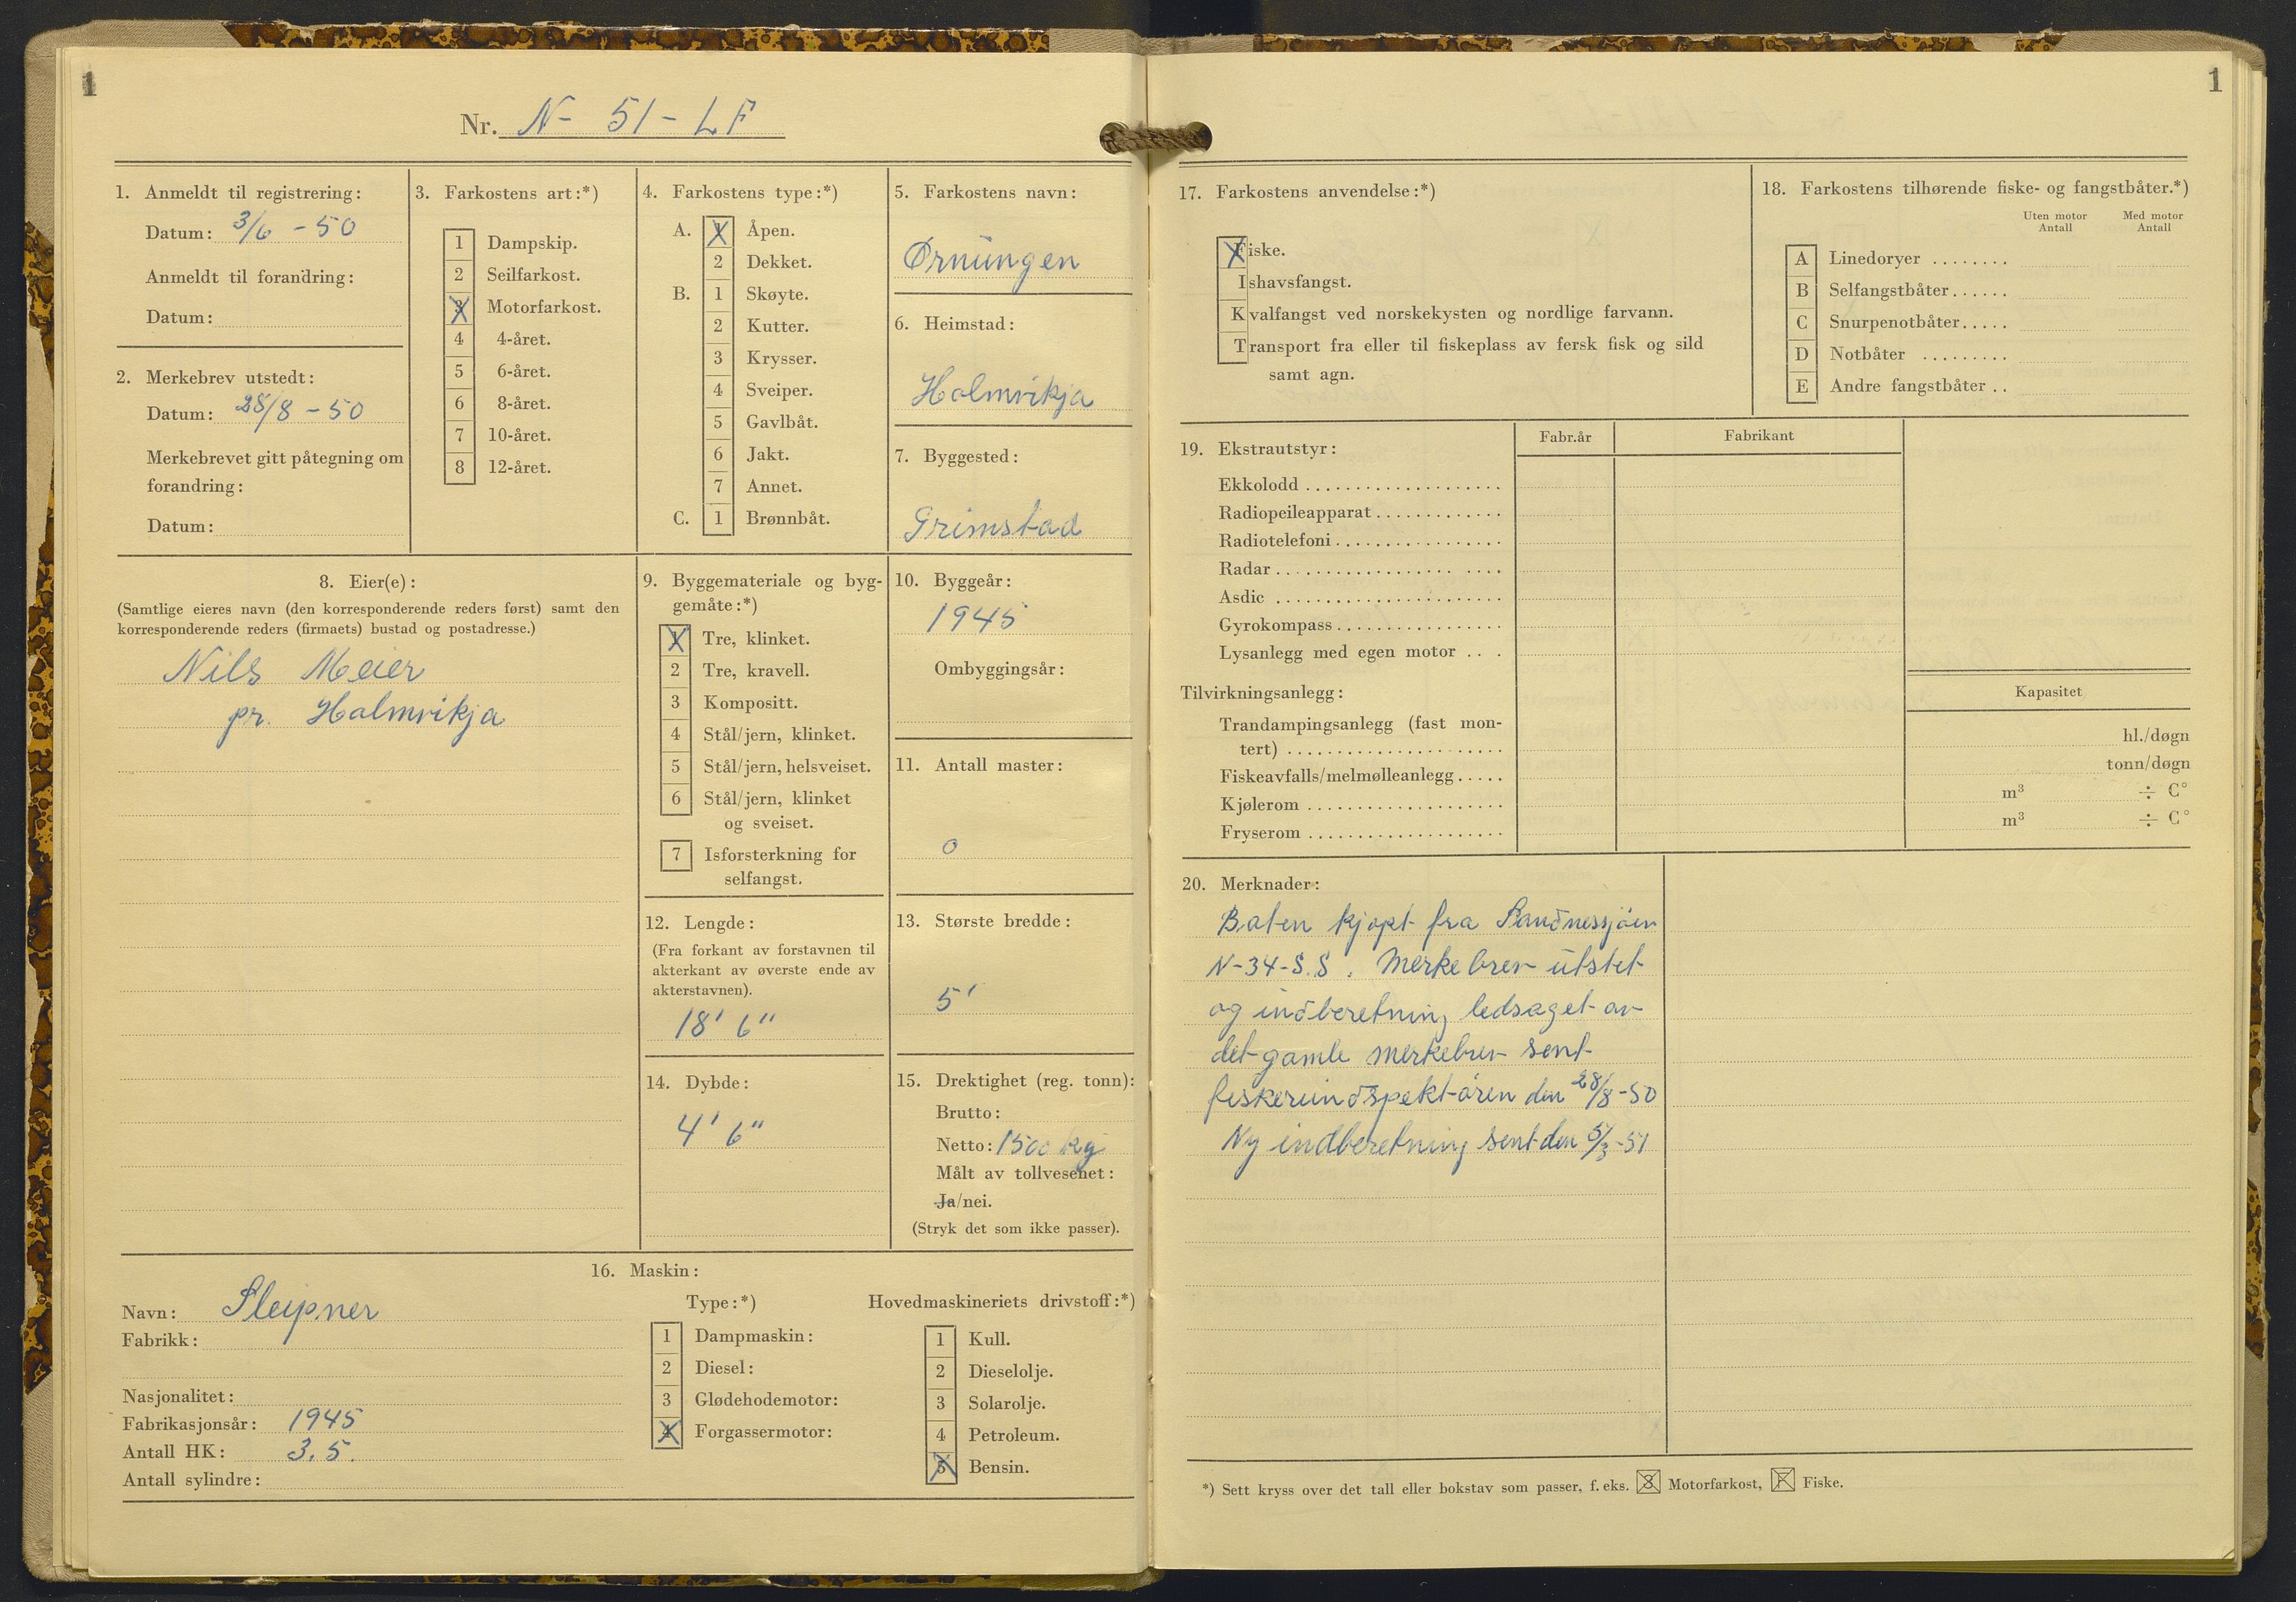 1
Nr. N- 51- LF
1. Anmeldt til registrering:
Datum: 3/6 - 50
Anmeldt til forandring:
Datum:
2. Merkebrev utstedt:
Datum: 28/8 - 50
Merkebrevet gitt påtegning om
forandring:
Datum:
3. Farkostens art:*)
1 Dampskip.
2 Seilfarkost.
3 Motorfarkost.
4 4-året.
5 6-året.
6 8-året.
7 10-året.
8 12-året.
4. Farkostens type:*)
A. 1 Åpen.
2 Dekket.
B. 1 Skøyte.
2 Kutter.
3 Krysser.
4 Sveiper.
5 Gavlbåt.
6 Jakt.
7 Annet.
C. 1 Brønnbåt.
5. Farkostens navn:
Ørnungen
6. Heimstad:
Holmvikja
7. Byggested:
Grimstad
8. Eier(e):
(Samtlige eieres navn (den korresponderende reders først) samt den
korresponderende reders (firmaets) bustad og postadresse.)
Nils Meier
pr. Holmvikja
9. Byggemateriale og byg-
gemåte:*)
1 Tre, klinket.
2 Tre, kravell.
3 Kompositt.
4 Stål/jern, klinket.
5 Stål/jern, helsveiset.
6 Stål/jern, klinket
og sveiset.
7 Isforsterkning for
selfangst.
10. Byggeår:
1945
Ombyggingsår:
11. Antall master:
0
12. Lengde:
(Fra forkant av forstavnen til
akterkant av øverste ende av
akterstavnen).
18' 6"
13. Største bredde:
5'
14. Dybde:
4' 6"
15. Drektighet (reg. tonn):
Brutto:
Netto: 1500 kg
Målt av tollvesenet:
Ja/nei.
(Stryk det som ikke passer).
16. Maskin:
Navn: Sleipner
Fabrikk:
Nasjonalitet:
Fabrikasjonsår: 1945
Antall HK: 3.5.
Antall sylindre:
Type:*)
1 Dampmaskin:
2 Diesel:
3 Glødehodemotor:
4 Forgassermotor:
Hovedmaskineriets drivstoff:*)
1 Kull.
2 Dieselolje.
3 Solarolje.
4 Petroleum.
5 Bensin.
1
17. Farkostens anvendelse:*)
Fiske.
Ishavsfangst.
Kvalfangst ved norskekysten og nordlige farvann.
Transport fra eller til fiskeplass av fersk fisk og sild
samt agn.
18. Farkostens tilhørende fiske- og fangstbåter.*)
Uten motor Med motor
Antall Antall
A Linedoryer ........
B Selfangstbåter......
C Snurpenotbåter.....
D Notbåter .........
E Andre fangstbåter ..
19. Ekstrautstyr: Fabr.år Fabrikant
Ekkolodd ....................
Radiopeileapparat .............
Radiotelefoni .................
Radar ..................  ....
Asdic .......................
Gyrokompass .................
Lysanlegg med egen motor .. .
Tilvirkningsanlegg: Kapasitet
Trandampingsanlegg (fast mon-
tert) ...................... hl./døgn
Fiskeavfalls/melmølleanlegg ..... tonn/døgn
Kjølerom .................... m³ ÷ C°
Fryserom .................... m³ ÷ C°
20. Merknader:
Båten kjøpt fra Sandnessjøen
N-34-S.S. Merkebrev utstet
og indberetning ledsaget av
det gamle merkebrev sent
fiskeriindspektøren den 28/8 -50
Ny indberetning sent den 5/3 -51
*) Sett kryss over det tall eller bokstav som passer, f. eks. 3 Motorfarkost, F Fiske.